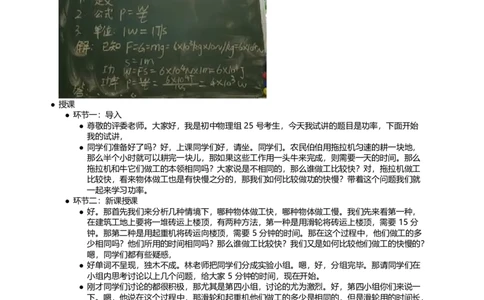 1 定义
2. 公式 P=W/t
3. 单位: 1W=1J/s
解: 已知 F=G=mg=
S=1m
功 W=FS=
功率 P=W/t=
授课
环节一：导入
尊敬的评委老师。大家好，我是初中物理组 25 号考生，今天我试讲的题目是功率，下面开始
我的试讲，
同学们准备好了吗？好，上课同学们好，请坐。同学们。农民伯伯用拖拉机匀速的耕一块地，
那么半个小时就可以耕完一块儿，那如果这些工作用一头牛来完成，则需要一天的时间。那么
拖拉机和牛它们做工的本领相同吗？大家说是不相同的，那么谁做工比较快？对，拖拉机做工
比较快，看来物体做工也是有快慢之分的，那我们如何比较做功的快慢？带着这个问题我们就
一起来学习功率。
环节二：新课授课
好。那首先我们来分析几种情境下，哪种物体做工快，哪种物体做工慢。我们先来看第一种，
在建筑工地上要将一堆砖运上楼顶，有两种方法，第一种是用滑轮将砖运上楼顶，需要 15 分
钟。那第二种是用起重机将砖运向楼顶，需要 5 分钟的时间。那在这个过程中，他们做工的多
少相同吗？他们所用的时间相同吗？那么谁做工比较快？我们又是如何比较他们做工的快慢的？
嗯，同学们都有些疑惑，
好单词不呈现，独木不成。林老师把同学们分成实验小组。嗯，好，分组完毕。那请同学们在
小组内思考讨论以上几个问题，给大家 5 分钟的时间，现在开始。
刚才同学们讨论的都很积极，那尤其是第四小组，讨论的尤为激烈。好，第四小组你们来说一
下。嗯，他说在这个过程中，那滑轮和起重机他们做工的多少是相同的，但是滑轮用的时间长，